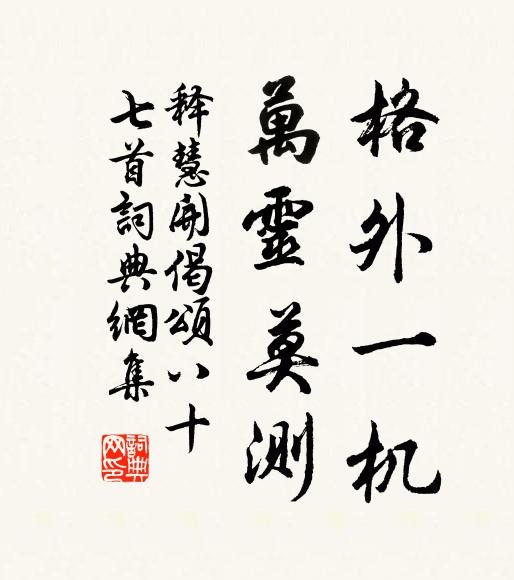 格外一机
萬靈莫測
释慧開偈頌八十
七首詞典網集
詞典网印